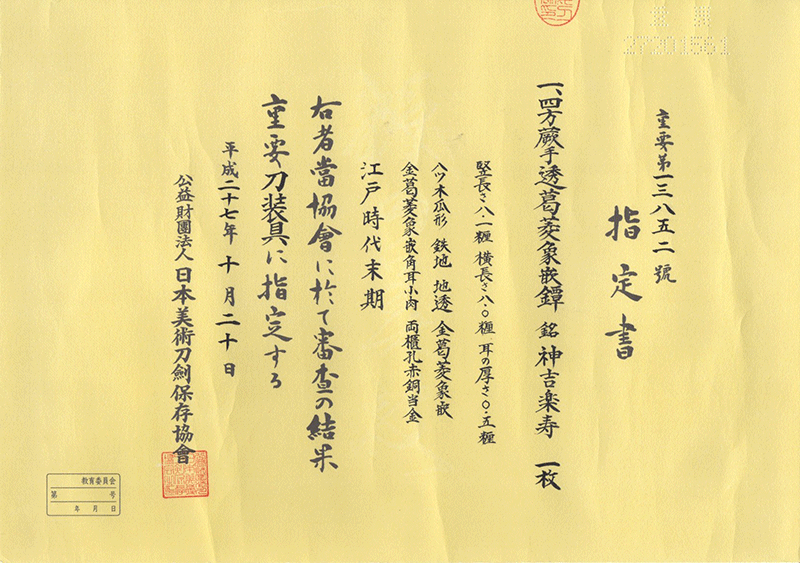 重要第一三八五二號
指定書
一、四方蕨手透葛菱象嵌鐔 銘 神吉楽寿 一枚
竪長さ八・一糎 横長さ八・〇糎 耳の厚さ〇・五糎
八ツ木瓜形 鉄地 地透 金葛菱象嵌
金葛菱象嵌角耳小肉 両櫃孔赤銅当金
江戸時代末期
右者當協會に於て審査の結果
重要刀装具に指定する
平成二十七年十月二十日
公益財團法人 日本美術刀劍保存協會
27201561
教育委員会
第 号
年 月 日